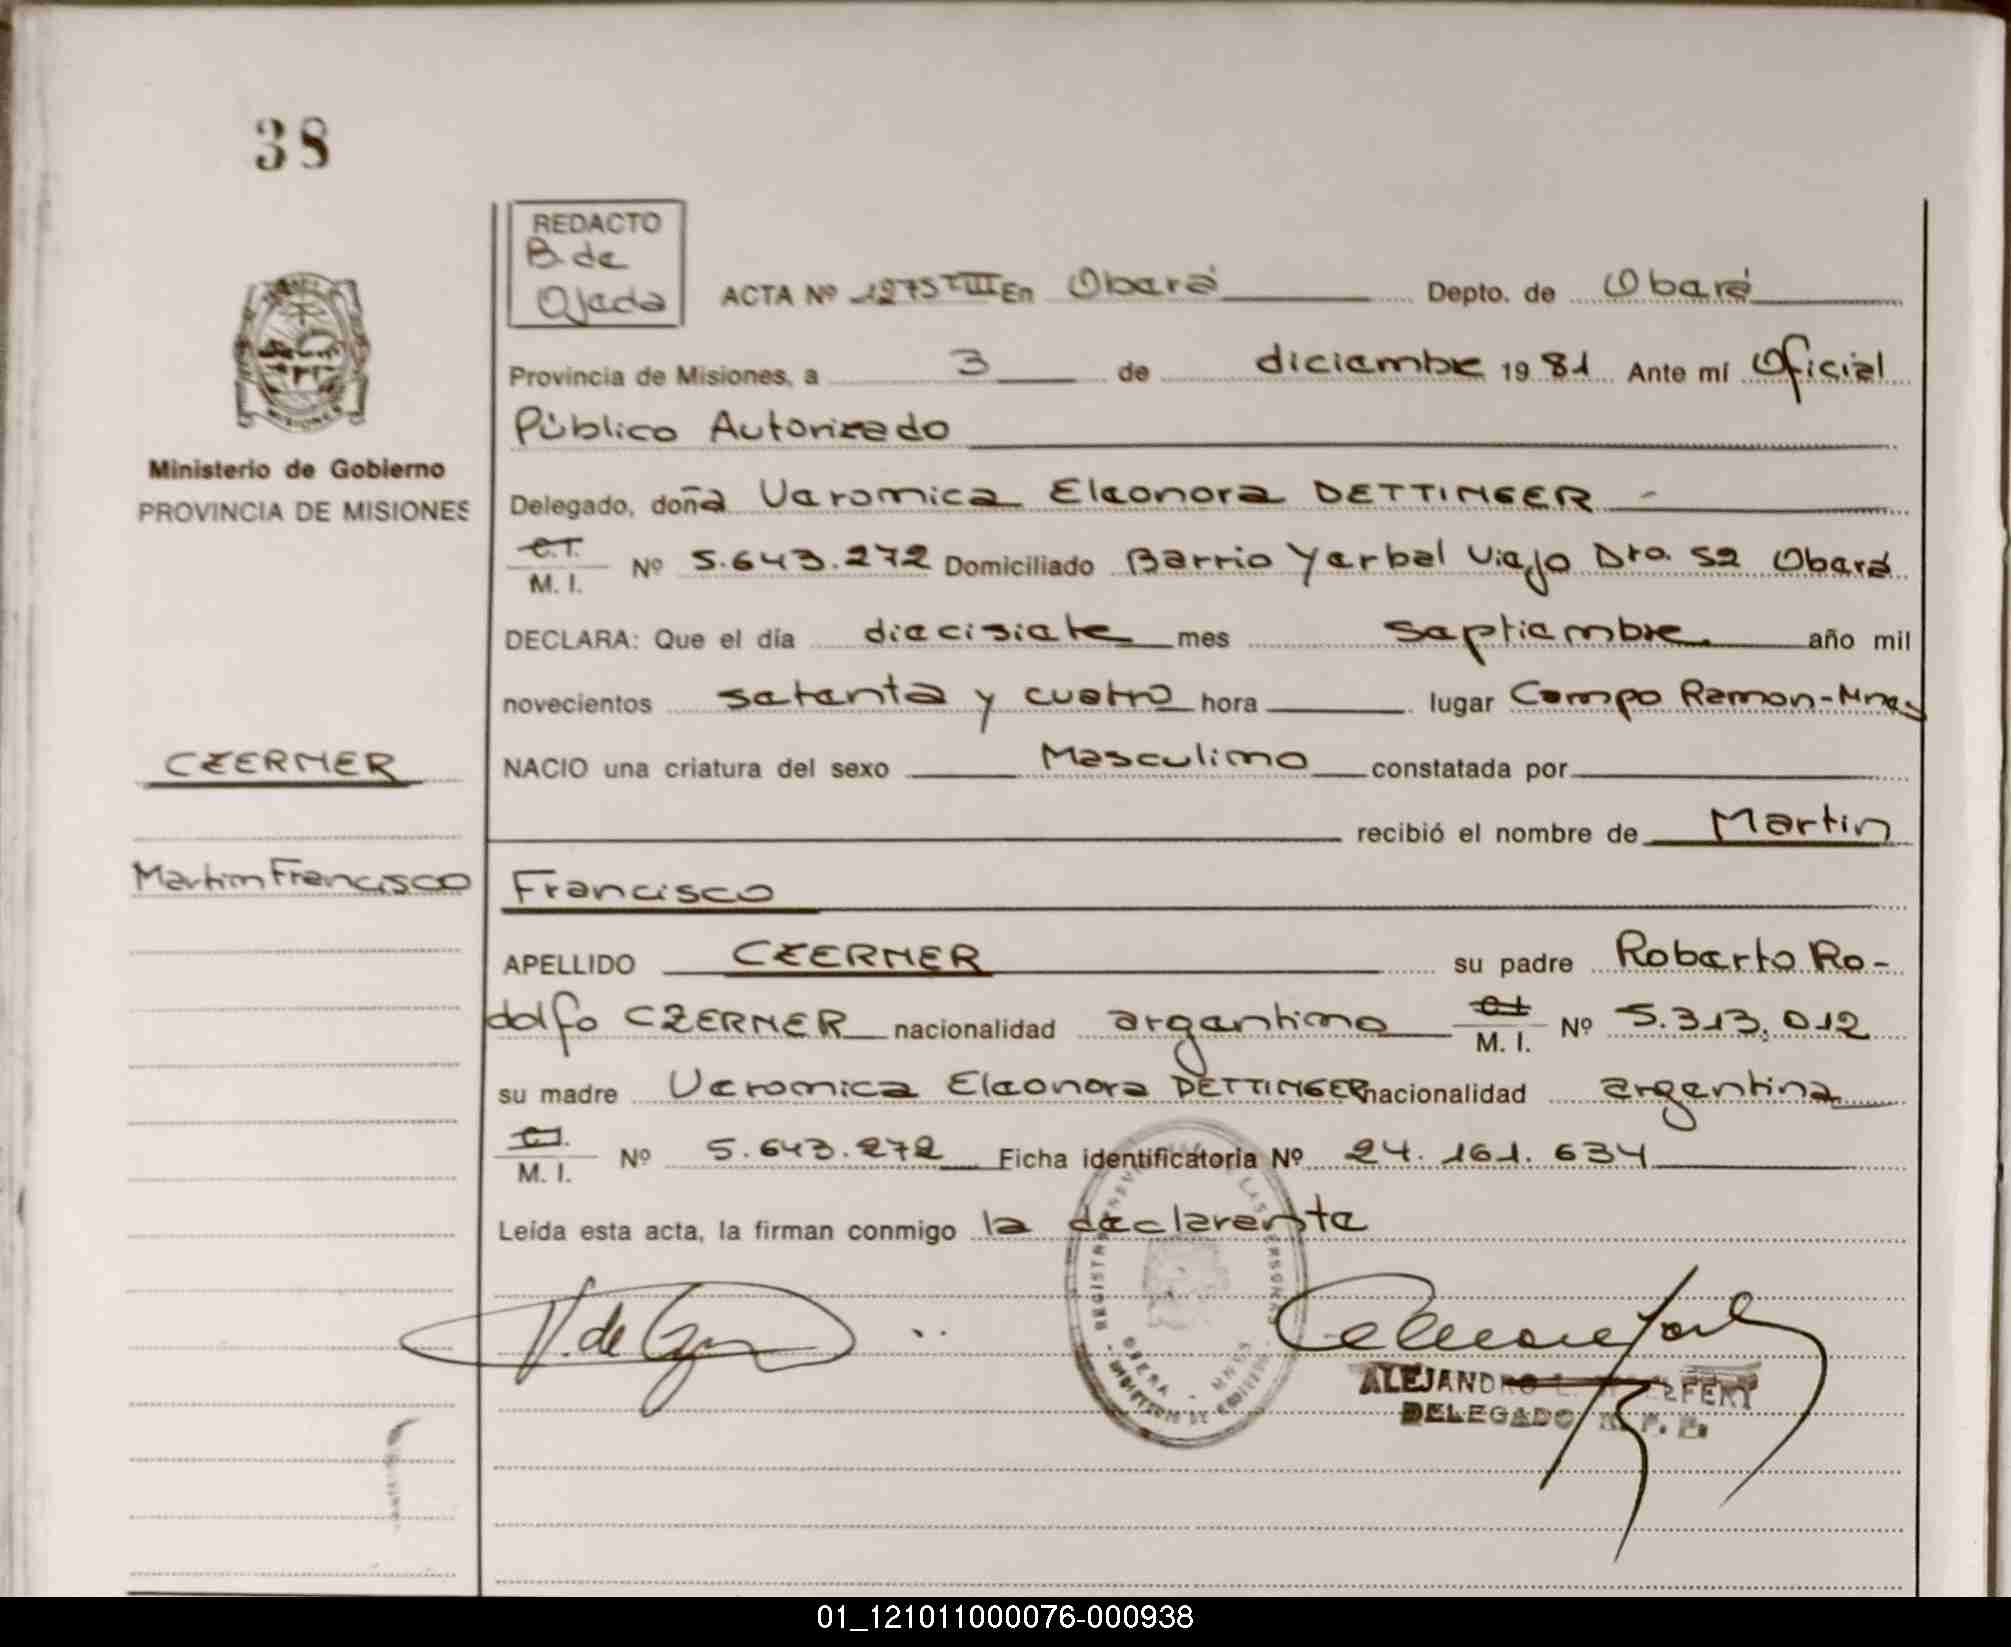 38
REDACTO
B. de
Ojeda
ACTA Nº 1275 TIII En Oberá Depto. de Oberá
Provincia de Misiones, a 3 de diciembre 1981 Ante mí Oficial
Público Autorizado
Ministerio de Gobierno
PROVINCIA DE MISIONES
Delegado, doña Veronica Eleonora DETTINGER -
C.I.
M. I. Nº 5.643.272 Domiciliado Barrio Yerbal Viejo Dto. 52 Oberá
DECLARA: Que el día diecisiete mes septiembre año mil
novecientos setenta y cuatro hora lugar Campo Ramon-Mnes
CZERNER
NACIO una criatura del sexo Masculino constatada por
recibió el nombre de Martin
Martin Francisco
Francisco
APELLIDO CZERNER su padre Roberto Ro-
dolfo CZERNER nacionalidad argentino C.I. M. I. Nº 5.313.012
su madre Veronica Eleonora DETTINGER nacionalidad argentina
C.I.
M. I. Nº 5.643.272 Ficha identificatoria Nº 24.161.634
Leída esta acta, la firman conmigo la declarante
V. de
REGISTRO LAS PERSONAS
OBERA - MNES
ALEJANDRO
DELEGADO R. P. P.
01_121011000076-000938